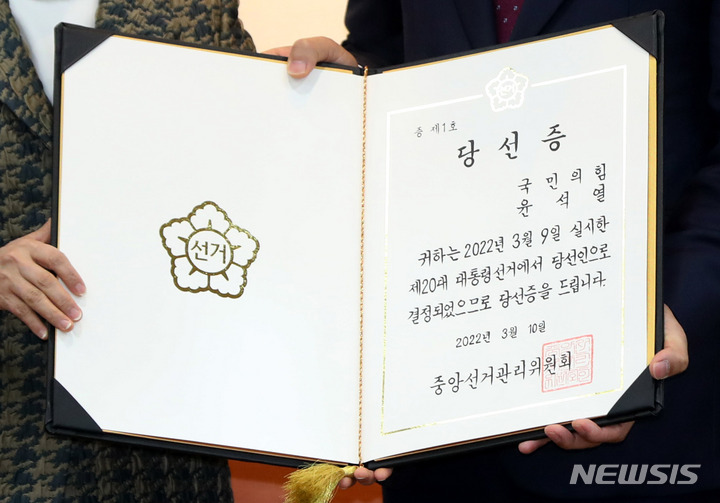 선거
선거
증 제1호
당 선 증
국 민 의 힘
윤 석 열
귀하는 2022년 3월 9일 실시한
제20대 대통령선거에서 당선인으로
결정되었으므로 당선증을 드립니다.
2022년 3월 10일
중앙선거관리위원회
NEWSIS